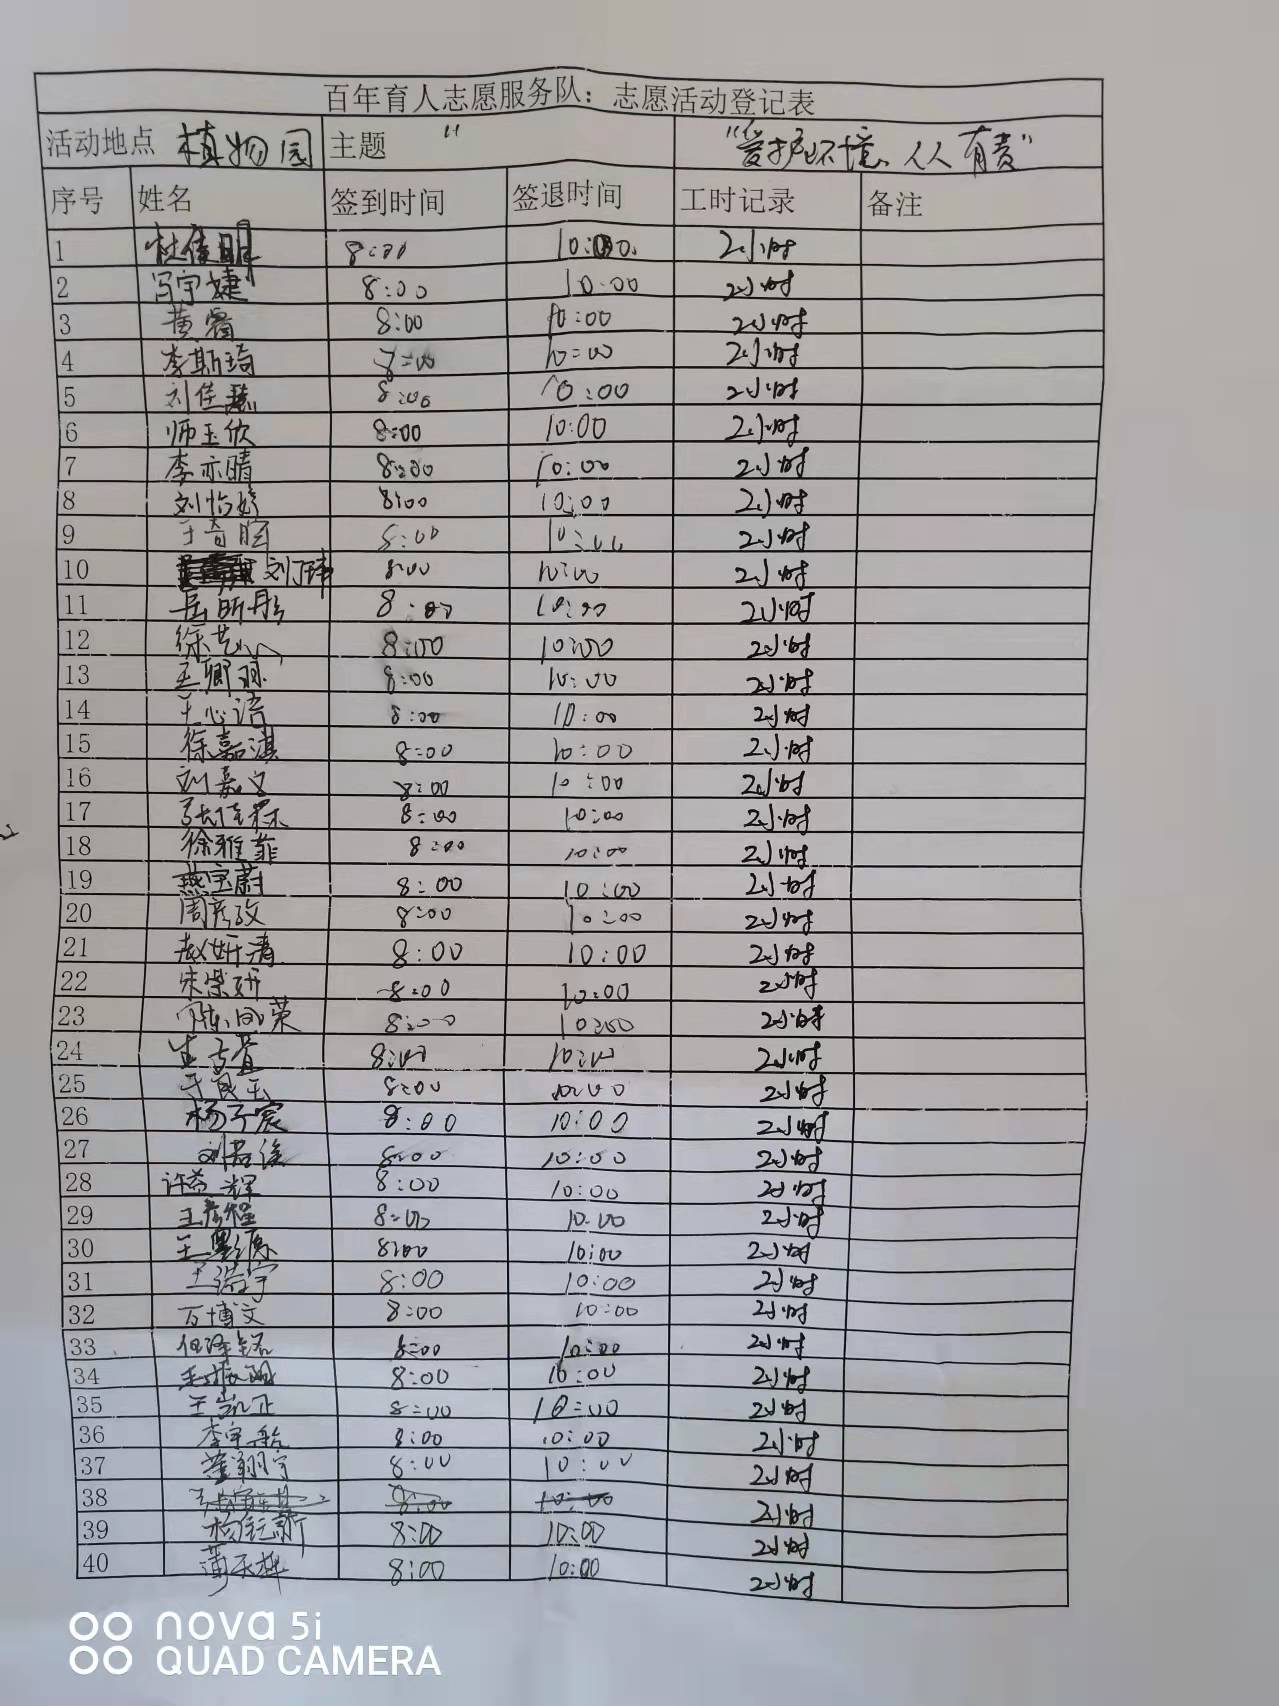 百年育人志愿服务队：志愿活动登记表
活动地点 植物园 主题 “ “爱护环境、人人有责”
序号 姓名 签到时间 签退时间 工时记录 备注
1 杜佳明 8:00 10:00. 2小时
2 冯宇婕 8:00 10:00 2小时
3 黄睿 8:00 10:00 2小时
4 李斯琦 8:00 10:00 2小时
5 刘佳慧 8:00 10:00 2小时
6 师玉欣 8:00 10:00 2小时
7 李亦晴 8:00 10:00 2小时
8 刘怡婷 8:00 10:00 2小时
9 8:00 10:00 2小时
10 刘丁玮 8:00 10:00 2小时
11 岳昕彤 8:00 10:00 2小时
12 徐艺 8:00 10:00 2小时
13 王卿 8:00 10:00 2小时
14 王心语 8:00 10:00 2小时
15 徐嘉淇 8:00 10:00 2小时
16 刘嘉文 8:00 10:00 2小时
17 张佳霖 8:00 10:00 2小时
18 徐雅菲 8:00 10:00 2小时
19 燕宝蔚 8:00 10:00 2小时
20 周彦孜 8:00 10:00 2小时
21 赵妍清 8:00 10:00 2小时
22 宋紫妍 8:00 10:00 2小时
23 陈 荣 8:00 10:00 2小时
24 8:00 10:00 2小时
25 8:00 10:00 2小时
26 杨子宸 8:00 10:00 2小时
27 刘若俊 8:00 10:00 2小时
28 许益辉 8:00 10:00 2小时
29 王彦程 8:00 10:00 2小时
30 王墨源 8:00 10:00 2小时
31 王浩宇 8:00 10:00 2小时
32 万博文 8:00 10:00 2小时
33 8:00 10:00 2小时
34 8:00 10:00 2小时
35 王凯正 8:00 10:00 2小时
36 李宇航 8:00 10:00 2小时
37 董翔宇 8:00 10:00 2小时
38 8:00 10:00 2小时
39 杨钰新 8:00 10:00 2小时
40 8:00 10:00 2小时
nova 5i
QUAD CAMERA